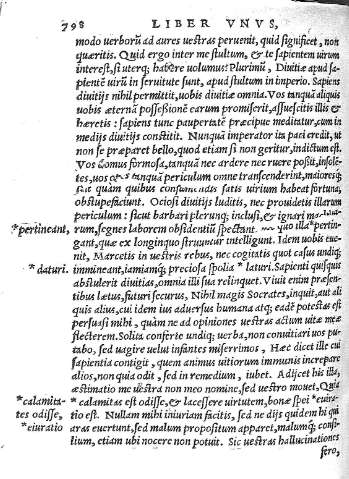 798 LIBER VNVS,
modo uerborũ ad aures uestras peruenit, quid significet, non
quæritis. Quid ergo inter me stultum, & te sapientem uirum
interest, si uterq; habere uolumus? Plurimũ, Diuitiæ apud sa-
pientẽ uirũ in seruitute sunt, apud stultum in imperio. Sapiens
diuitijs nihil permittit, uobis diuitiæ omnia. Vos tanquã aliquis
uobis æternã possessionẽ earum promiserit, assuescitis illis &
hæretis: sapiens tunc paupertatẽ præcipue meditatur, cum in
medijs diuitijs constitit. Nunquã imperator ita paci credit, ut
non se præparet bello, quod etiam si non geritur, indictum est.
Vos domus formosa, tanquã nec ardere nec ruere possit, insolẽ-
tes, uos opes tanquã periculum omne transcenderint, maioresq;
sint quàm quibus consumendis satis uirium habeat fortuna,
obstupefaciunt. Ociosi diuitijs luditis, nec prouidetis illarum
periculum: sicut barbari plerunq; inclusi, & ignari
*pertineant, rum, segnes laborem obsidentiũ spectant quo illa *pertin-
gant, quæ ex longinquo struuntur intelligunt. Idem uobis eue-
nit, Marcetis in uestris rebus, nec cogitatis quot casus undiq;
*daturi. immineant, iamiamq; preciosa spolia *laturi. Sapienti quisquis
abstulerit diuitias, omnia illi sua relinquet. Viuit enim præsen-
tibus lætus, futuri securus, Nihil magis Socrates, inquit, aut ali
quis alius, cui idem ius aduersus humana atq; eadẽ potestas est
persuasi mihi, quàm ne ad opiniones uestras actum uitæ meæ
flecterem. Solita conferte undiq; uerba, non conuitiari uos pu-
tabo, sed uagire uelut infantes miserrimos, Hæc dicet ille cui
sapientia contigit, quem animus uitiorum immunis increpare
alios, non quia odit, sed in remedium, iubet. Adijcet his illa,
æstimatio me uestra non meo nomine, sed uestro mouet, Quia
*calamita- *calamitas est odisse, & lacessere uirtutem, bonæ spei *euira-
tes odisse, tio est. Nullam mihi iniuriam facitis, sed ne dijs quidem hi qui
*eiuratio aras euertunt, sed malum propositum apparet, malumq; consi-
lium, etiam ubi nocere non potuit. Sic uestras hallucinationes
fero,